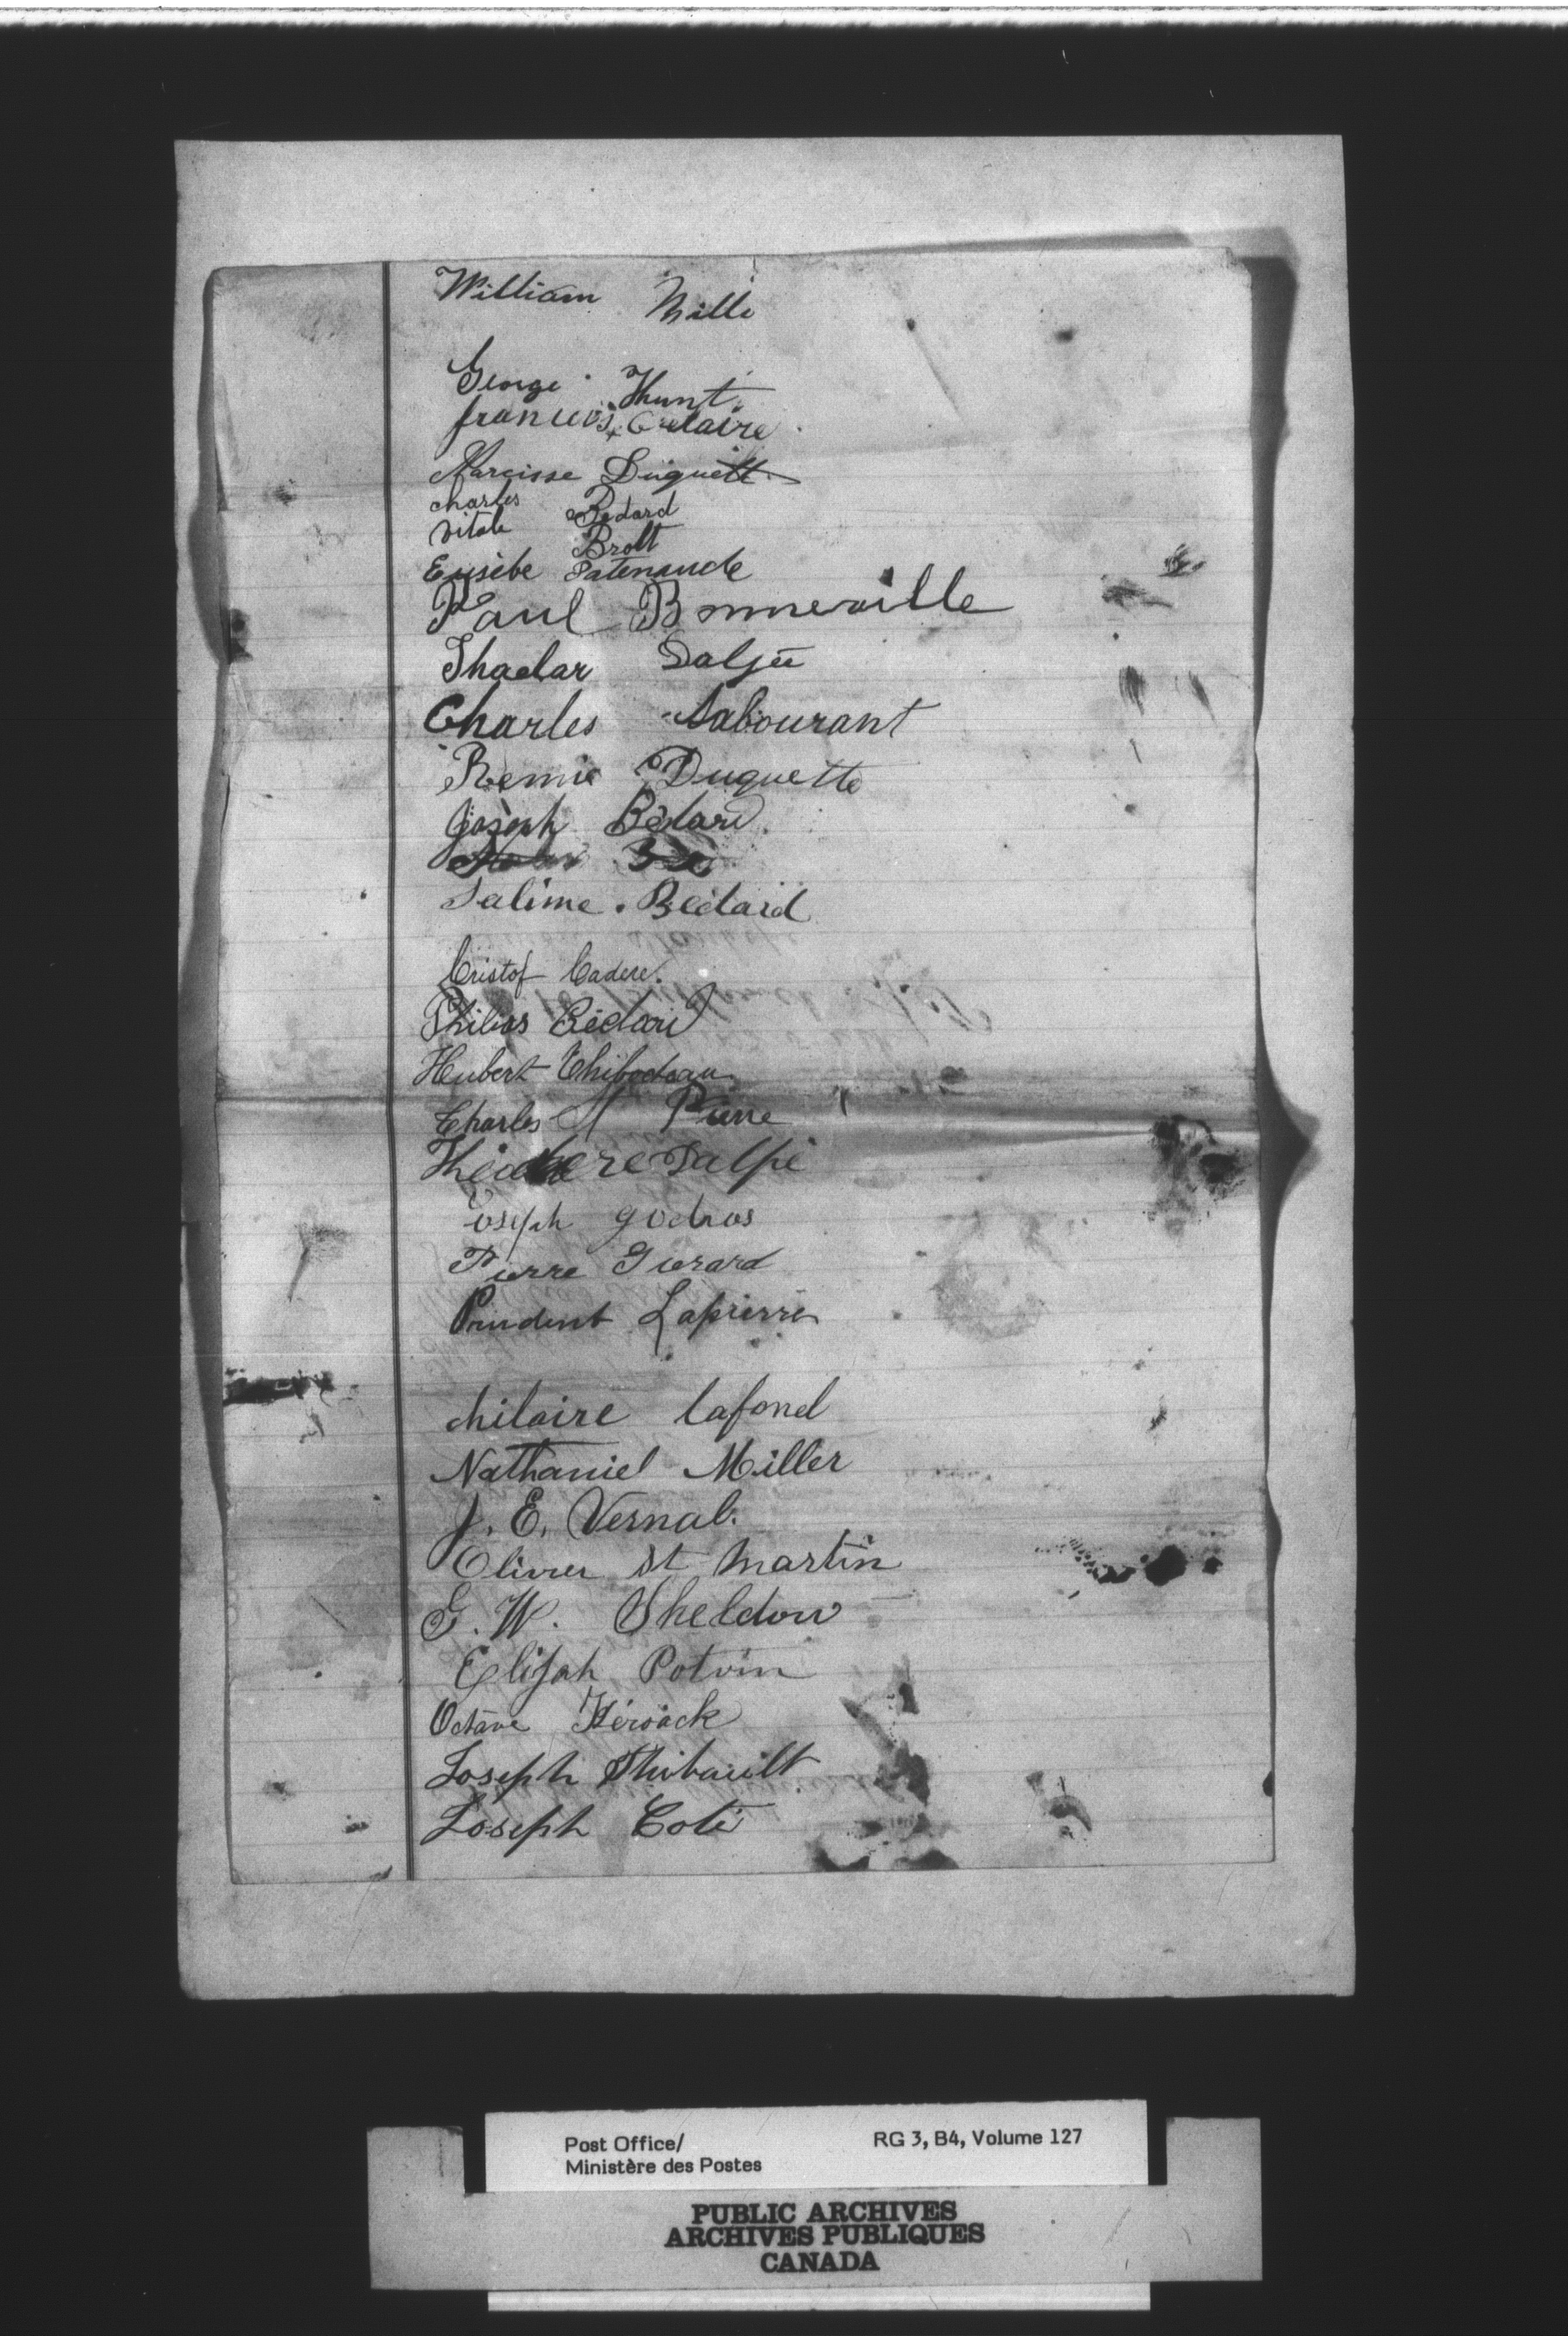 William Mills
George Hunt
francois Crelaire
Narcisse Duquett
charles Bedard
vitale Brolt
Eusèbe Patenaude
Paul Bonneville
Thadar Daljée
Charles Sabourant
Remie Duquette
Joseph Bédard
Salime Bedard
Cristof Cadere.
Philias Bédard
Hubert Thibodeau
Charles St Pierre
Dalpé
Joseph godros
Pierre Gierard
Prudent Lapierre
chilaire lafond
Nathaniel Miller
J. E. Vernal.
Olivier St Martin
G. W. Sheldon
Elijah Potvin
Octave Kéroack
Joseph Thibault
Joseph Coté
Post Office/ RG 3, B4, Volume 127
Ministère des Postes
PUBLIC ARCHIVES
ARCHIVES PUBLIQUES
CANADA